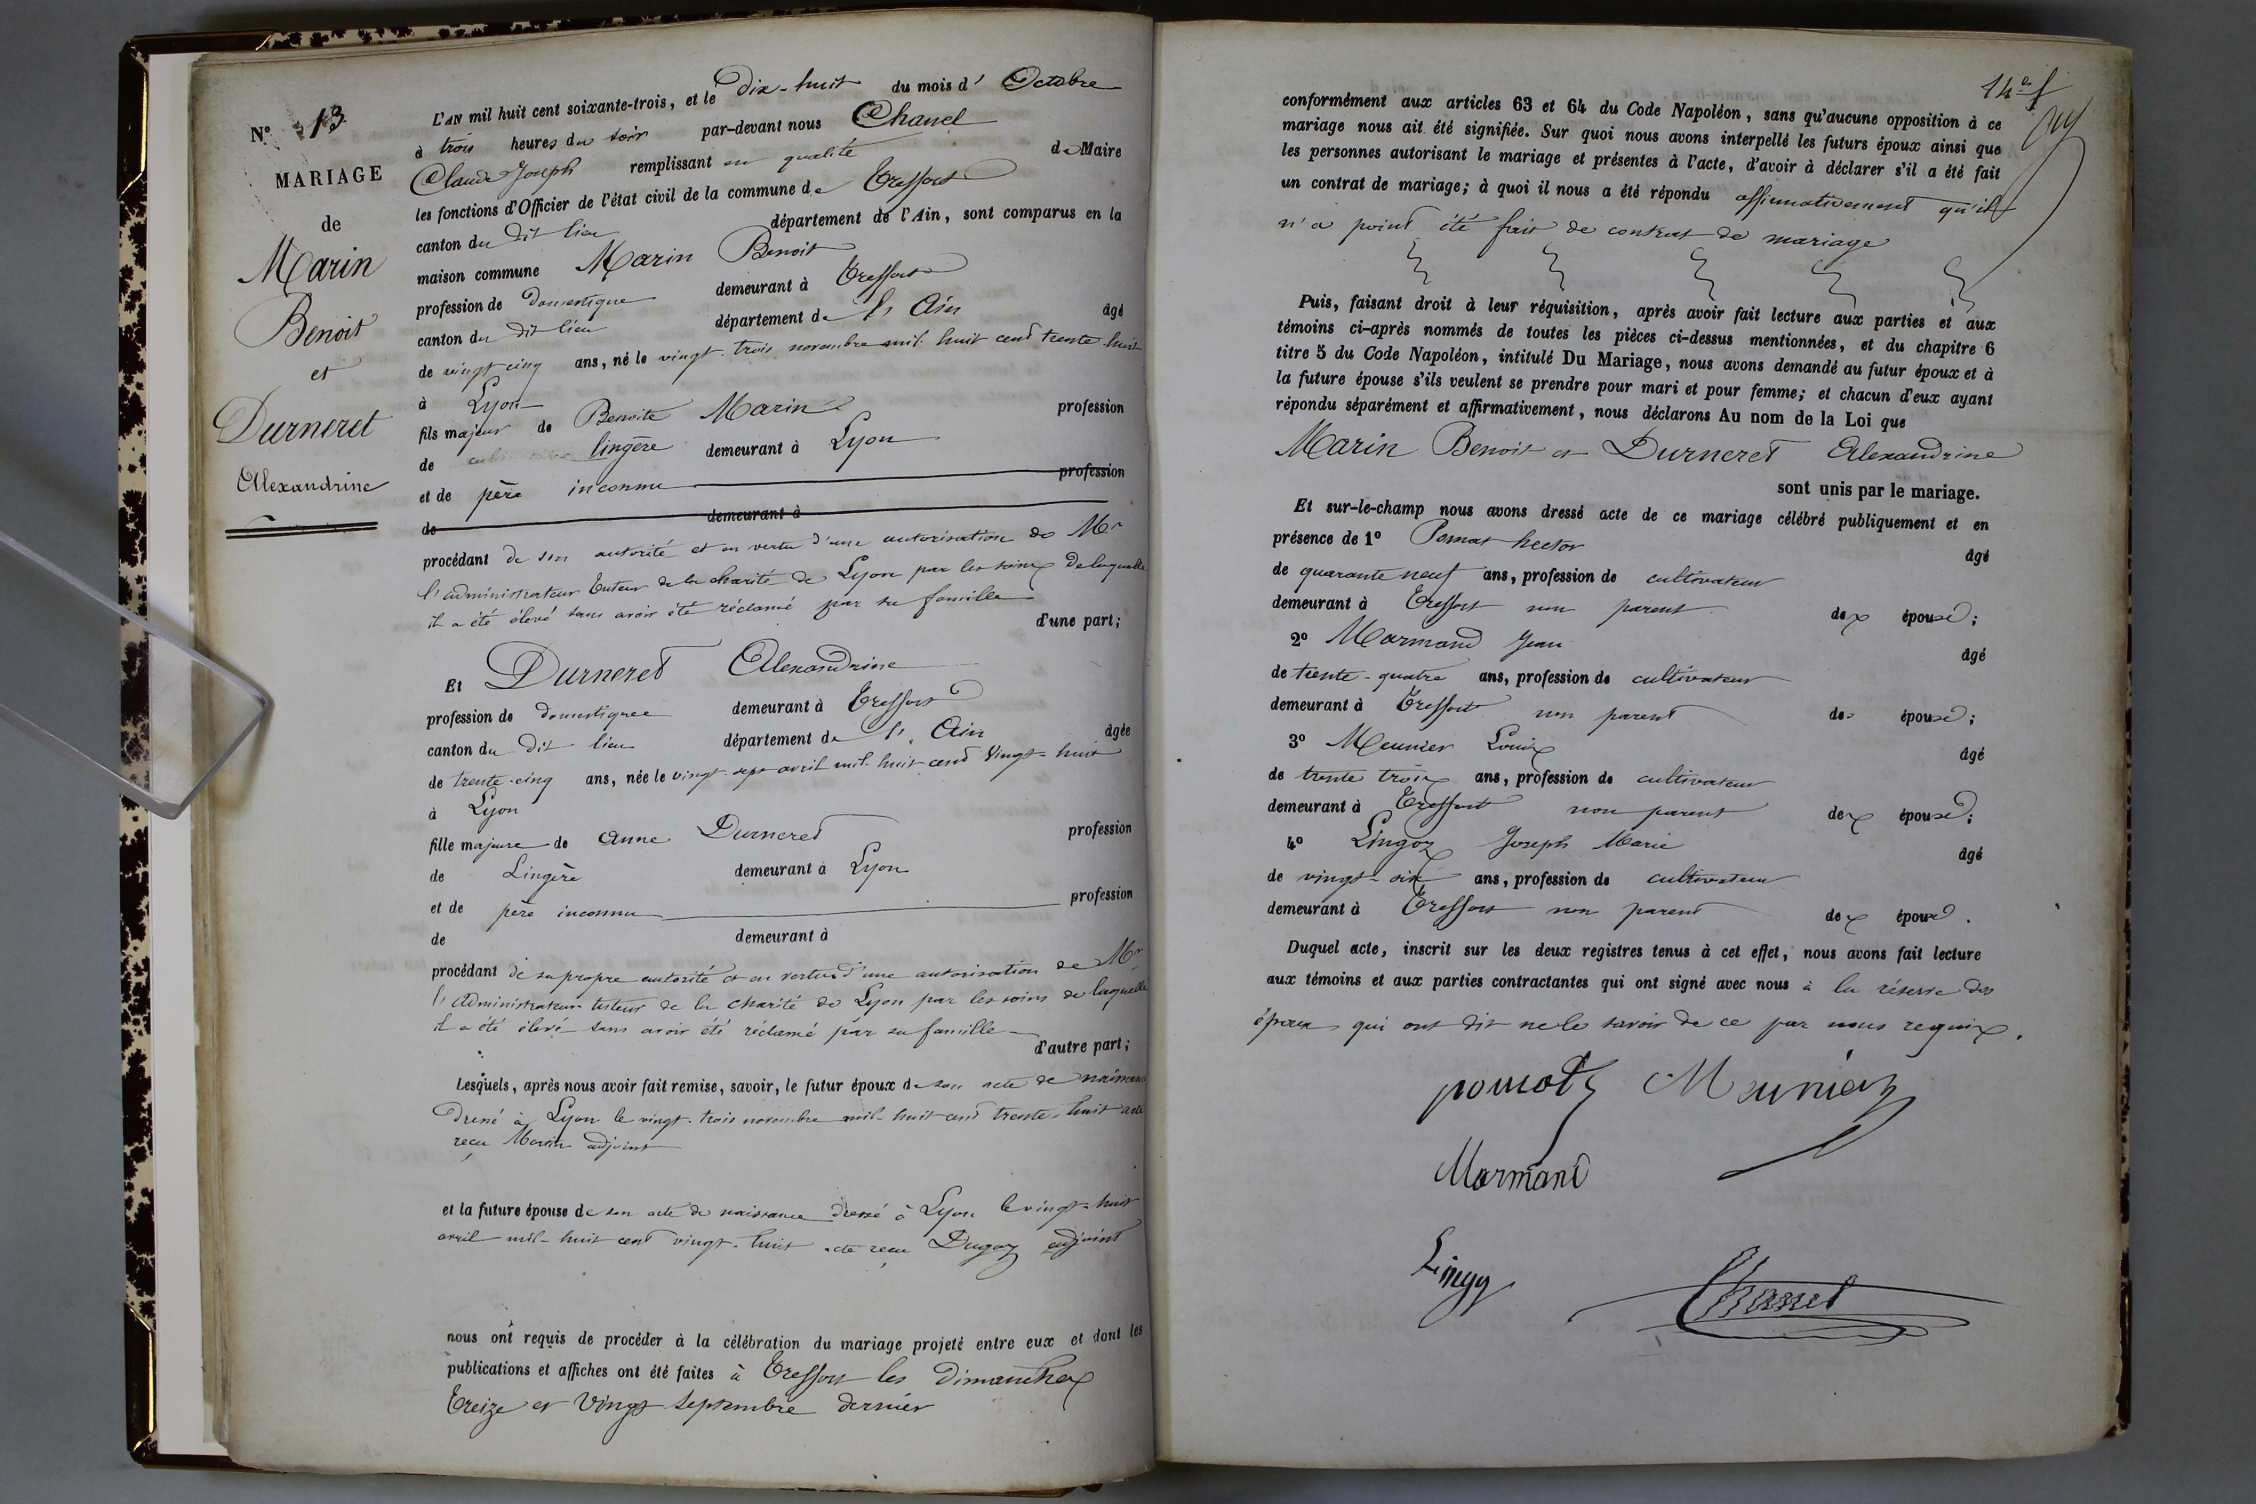 N° 13
MARIAGE
de
Marin
Benoit
et
Durneret
Alexandrine
L'AN mil huit cent soixante-trois, et le Dix-huit du mois d' Octobre
à trois heures du soir par-devant nous Chanel
Claude Joseph remplissant en qualité de Maire
les fonctions d'Officier de l'état civil de la commune de Treffort
canton du dit lieu département de l'Ain, sont comparus en la
maison commune Marin Benoit
profession de Domestique demeurant à Treffort
canton du dit lieu département de l'Ain âgé
de vingt cinq ans, né le vingt-trois novembre mil huit cent trente huit
à Lyon
fils majeur de Benoite Marin profession
de lingère demeurant à Lyon
et de père inconnu profession
de demeurant à
procédant de son autorité et en vertu d'une autorisation de Mr
l'administrateur Tuteur de la charité de Lyon par les soins de laquelle
il a été élevé sans avoir été réclamé par sa famille
d'une part;
Et Durneret Alexandrine
profession de domestique demeurant à Treffort
canton du dit lieu département de l'Ain âgée
de trente-cinq ans, née le vingt-sept avril mil-huit-cent Vingt-huit
à Lyon
fille majeure de Anne Durneret profession
de Lingère demeurant à Lyon
et de père inconnu profession
de demeurant à
procédant de sa propre autorité et en vertu d'une autorisation de Mr
l'Administrateur tuteur de la charité de Lyon par les soins de laquelle
il a été élevé sans avoir été réclamé par sa famille
d'autre part;
Lesquels, après nous avoir fait remise, savoir, le futur époux de son acte de naissance
Dressé à Lyon le vingt-trois novembre mil-huit cent trente-huit acte
reçu adjoint
et la future épouse de son acte de naissance dressé à Lyon le vingt-huit
avril mil-huit cent vingt-huit acte reçu Dugoz adjoint
nous ont requis de procéder à la célébration du mariage projeté entre eux et dont les
publications et affiches ont été faites à Treffort les Dimanches
Treize et Vingt Septembre dernier
14e f
conformément aux articles 63 et 64 du Code Napoléon, sans qu'aucune opposition à ce
mariage nous ait été signifiée. Sur quoi nous avons interpellé les futurs époux ainsi que
les personnes autorisant le mariage et présentes à l'acte, d'avoir à déclarer s'il a été fait
un contrat de mariage; à quoi il nous a été répondu affirmativement qu'il
n'a point été fait de contrat de mariage
Puis, faisant droit à leur réquisition, après avoir fait lecture aux parties et aux
témoins ci-après nommés de toutes les pièces ci-dessus mentionnées, et du chapitre 6
titre 5 du Code Napoléon, intitulé Du Mariage, nous avons demandé au futur époux et à
la future épouse s'ils veulent se prendre pour mari et pour femme; et chacun d'eux ayant
répondu séparément et affirmativement, nous déclarons Au nom de la Loi que
Marin Benoit et Durneret Alexandrine
sont unis par le mariage.
Et sur-le-champ nous avons dressé acte de ce mariage célébré publiquement et en
présence de 1° Pomat hector âgé
de quarante neuf ans, profession de cultivateur
demeurant à Treffort non parent des épouse;
2° Marmand Jean âgé
de trente-quatre ans, profession de cultivateur
demeurant à Treffort non parent des épouse;
3° Meunier Louis âgé
de trente trois ans, profession de cultivateur
demeurant à Treffort non parent des épouse;
4° Lingoz Joseph Marie âgé
de vingt-six ans, profession de cultivateur
demeurant à Treffort non parent des épouse.
Duquel acte, inscrit sur les deux registres tenus à cet effet, nous avons fait lecture
aux témoins et aux parties contractantes qui ont signé avec nous à la réserve des
époux qui ont dit ne le savoir de ce par nous requis.
Meunier
Marmand
Chanel